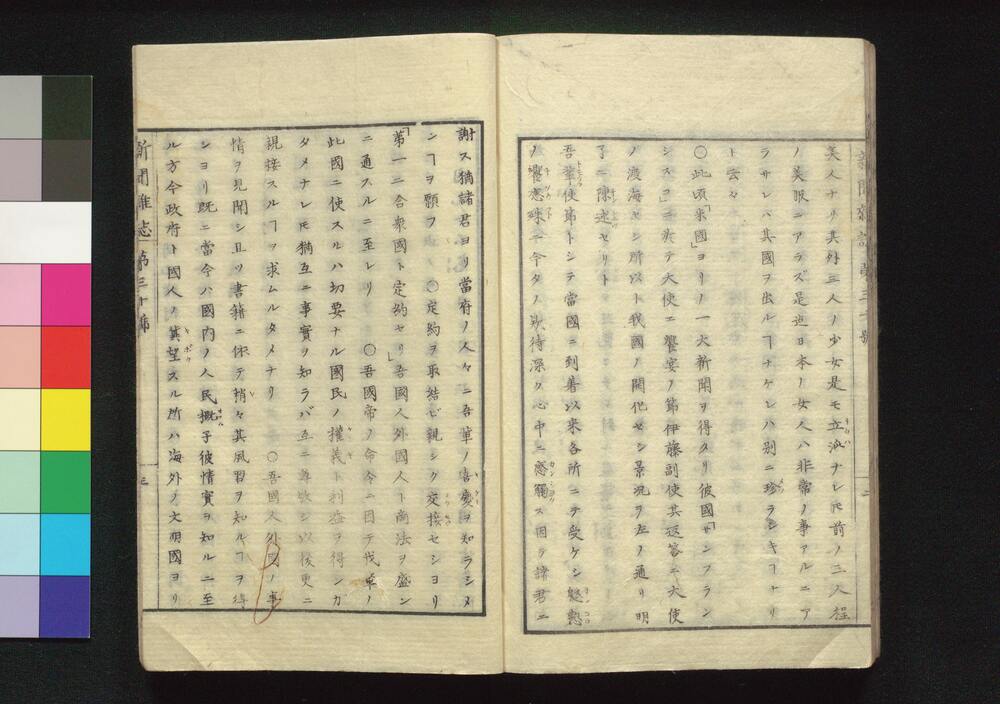 美人ナリ其外三人ノ少女是モ立派ナレ𪜈前ノ二人程
ノ美服ニアラズ是迄日本ノ女人ハ非常ノ事アルニア
ラサレバ其國ヲ出ルヿナケレバ別ニ珍ラシキヿナリ
ト云々
〇此頃米國ヨリノ一大新聞ヲ得タリ彼國サンフラン
シスコニ於テ大使エ饗宴ノ節伊藤副使其返答ニ大使
ノ渡海セシ所以ト我國ノ開化セシ景況ヲ左ノ通リ明
了ニ陳述セリト
吾輩使節トシテ當國ニ到着以来各所ニテ受ケシ慇懃
ノ饗應殊ニ今夕ノ欵待深ク心中ニ感觸ス因テ諸君ニ
謝ス猶諸君ヨリ當府ノ人々ニ吾輩ノ喜慶ヲ知ラシメ
ンヿヲ願フ 〇定約ヲ取結ビ親シク交接セシヨリ
第一ニ合衆國ト定約セリ吾國人外國人ト商法ヲ盛ン
ニ通スルニ至レリ 〇吾國帝ノ命令ニ因テ我輩ノ
此國ニ使スルハ切要ナル國民ノ權義ト利益ヲ得ンガ
タメナレ𪜈猶互ニ事實ヲ知ラバ互ニ尊敬シ以後更ニ
親接スルヿヲ求ムルタメナリ 〇吾國人外國ノ事
情ヲ見聞シ且ツ書籍ニ依テ稍々其風習ヲ知ルヿヲ得
シヨリ既ニ當今ハ國内ノ人民概子彼情實ヲ知ルニ至
ル方今政府ト國人ノ冀望スル所ハ海外ノ文明國ヨリ
新聞雜誌 第三十號 三